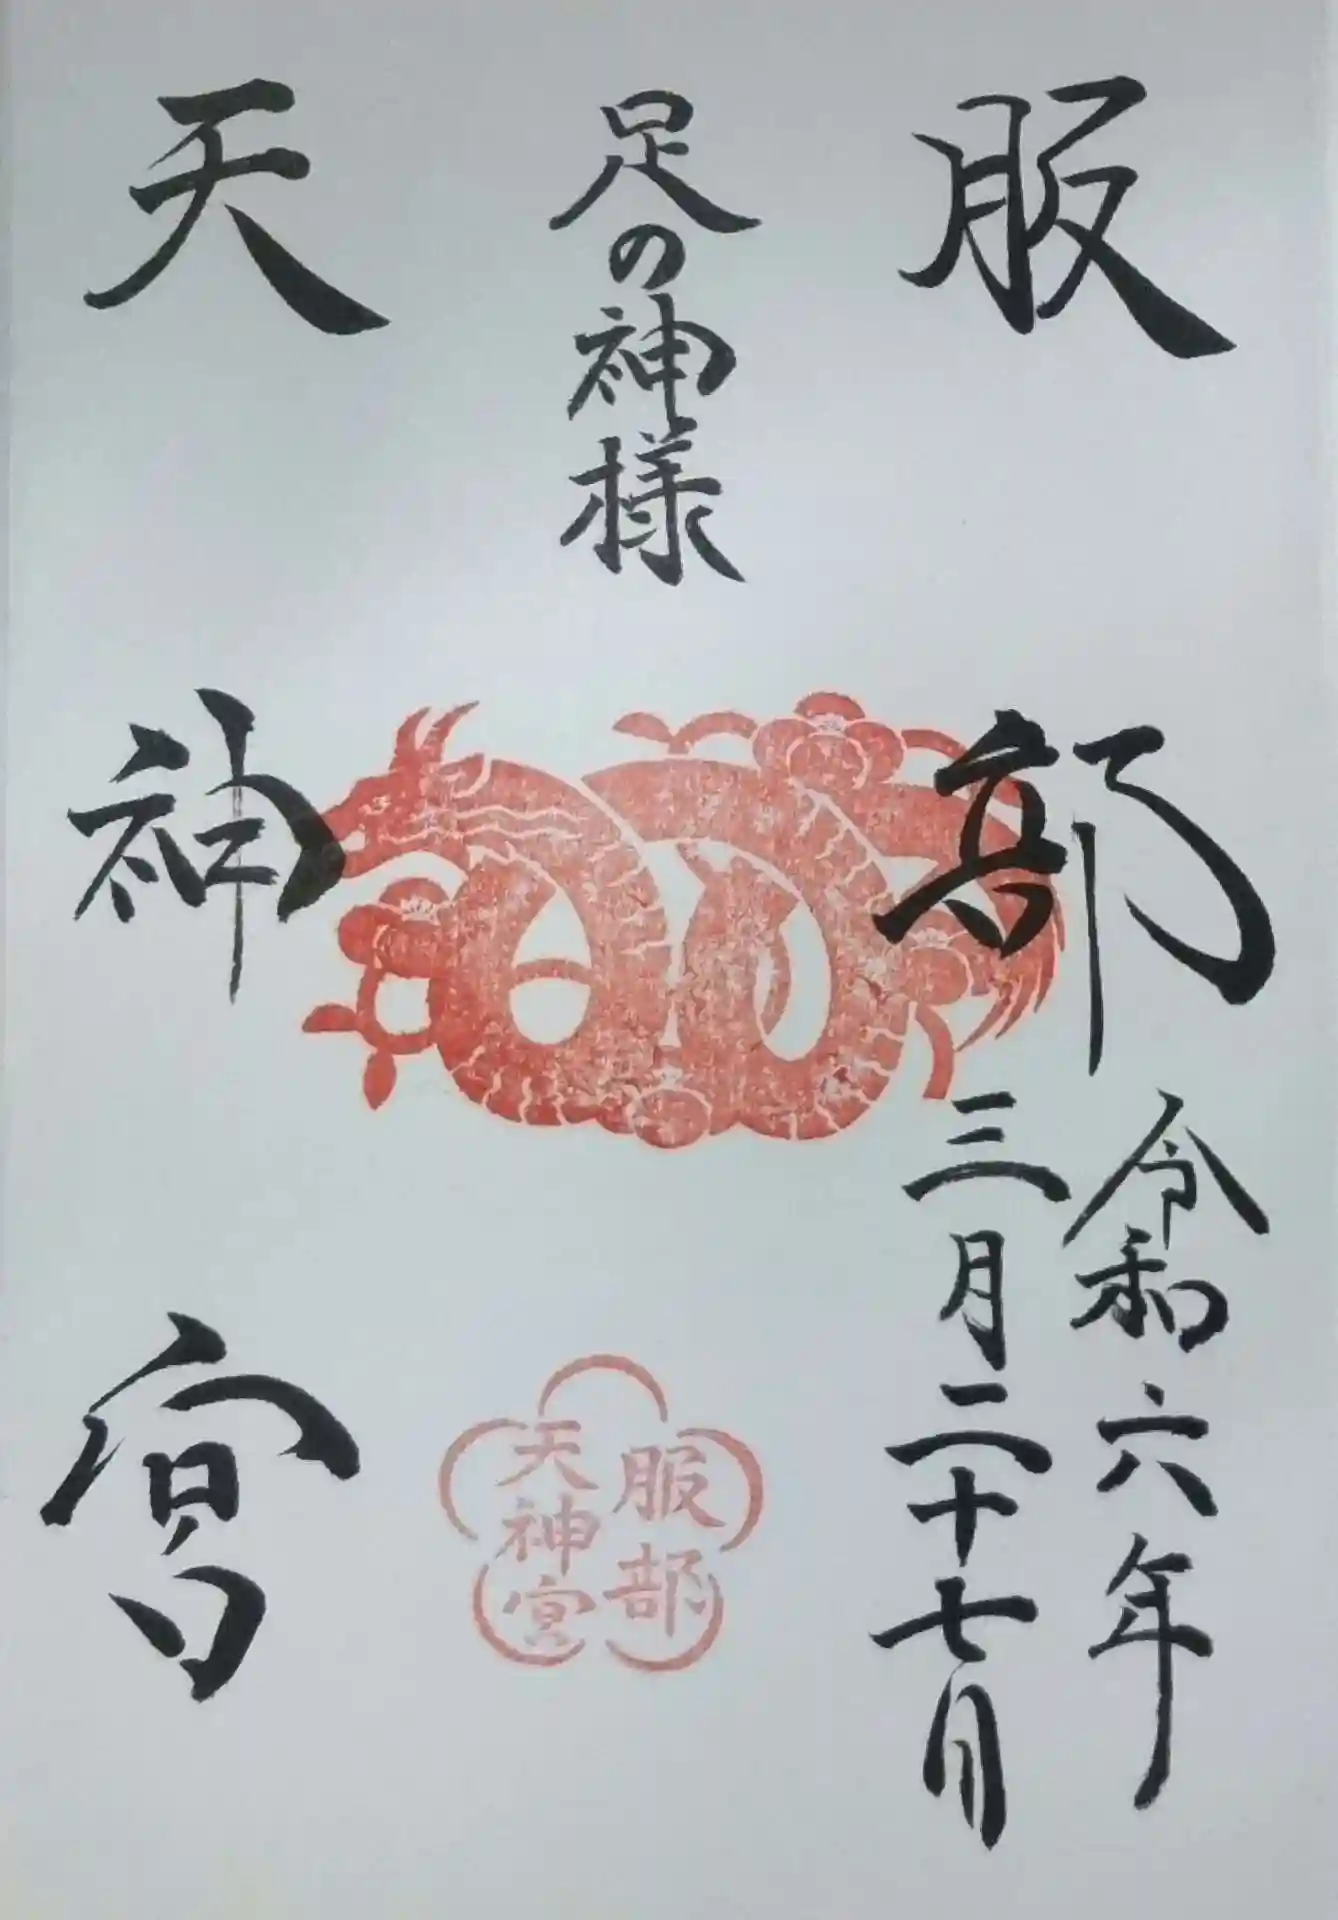 服部
令和六年
三月二十七日
足の神様
服部
天神宮
天神宮